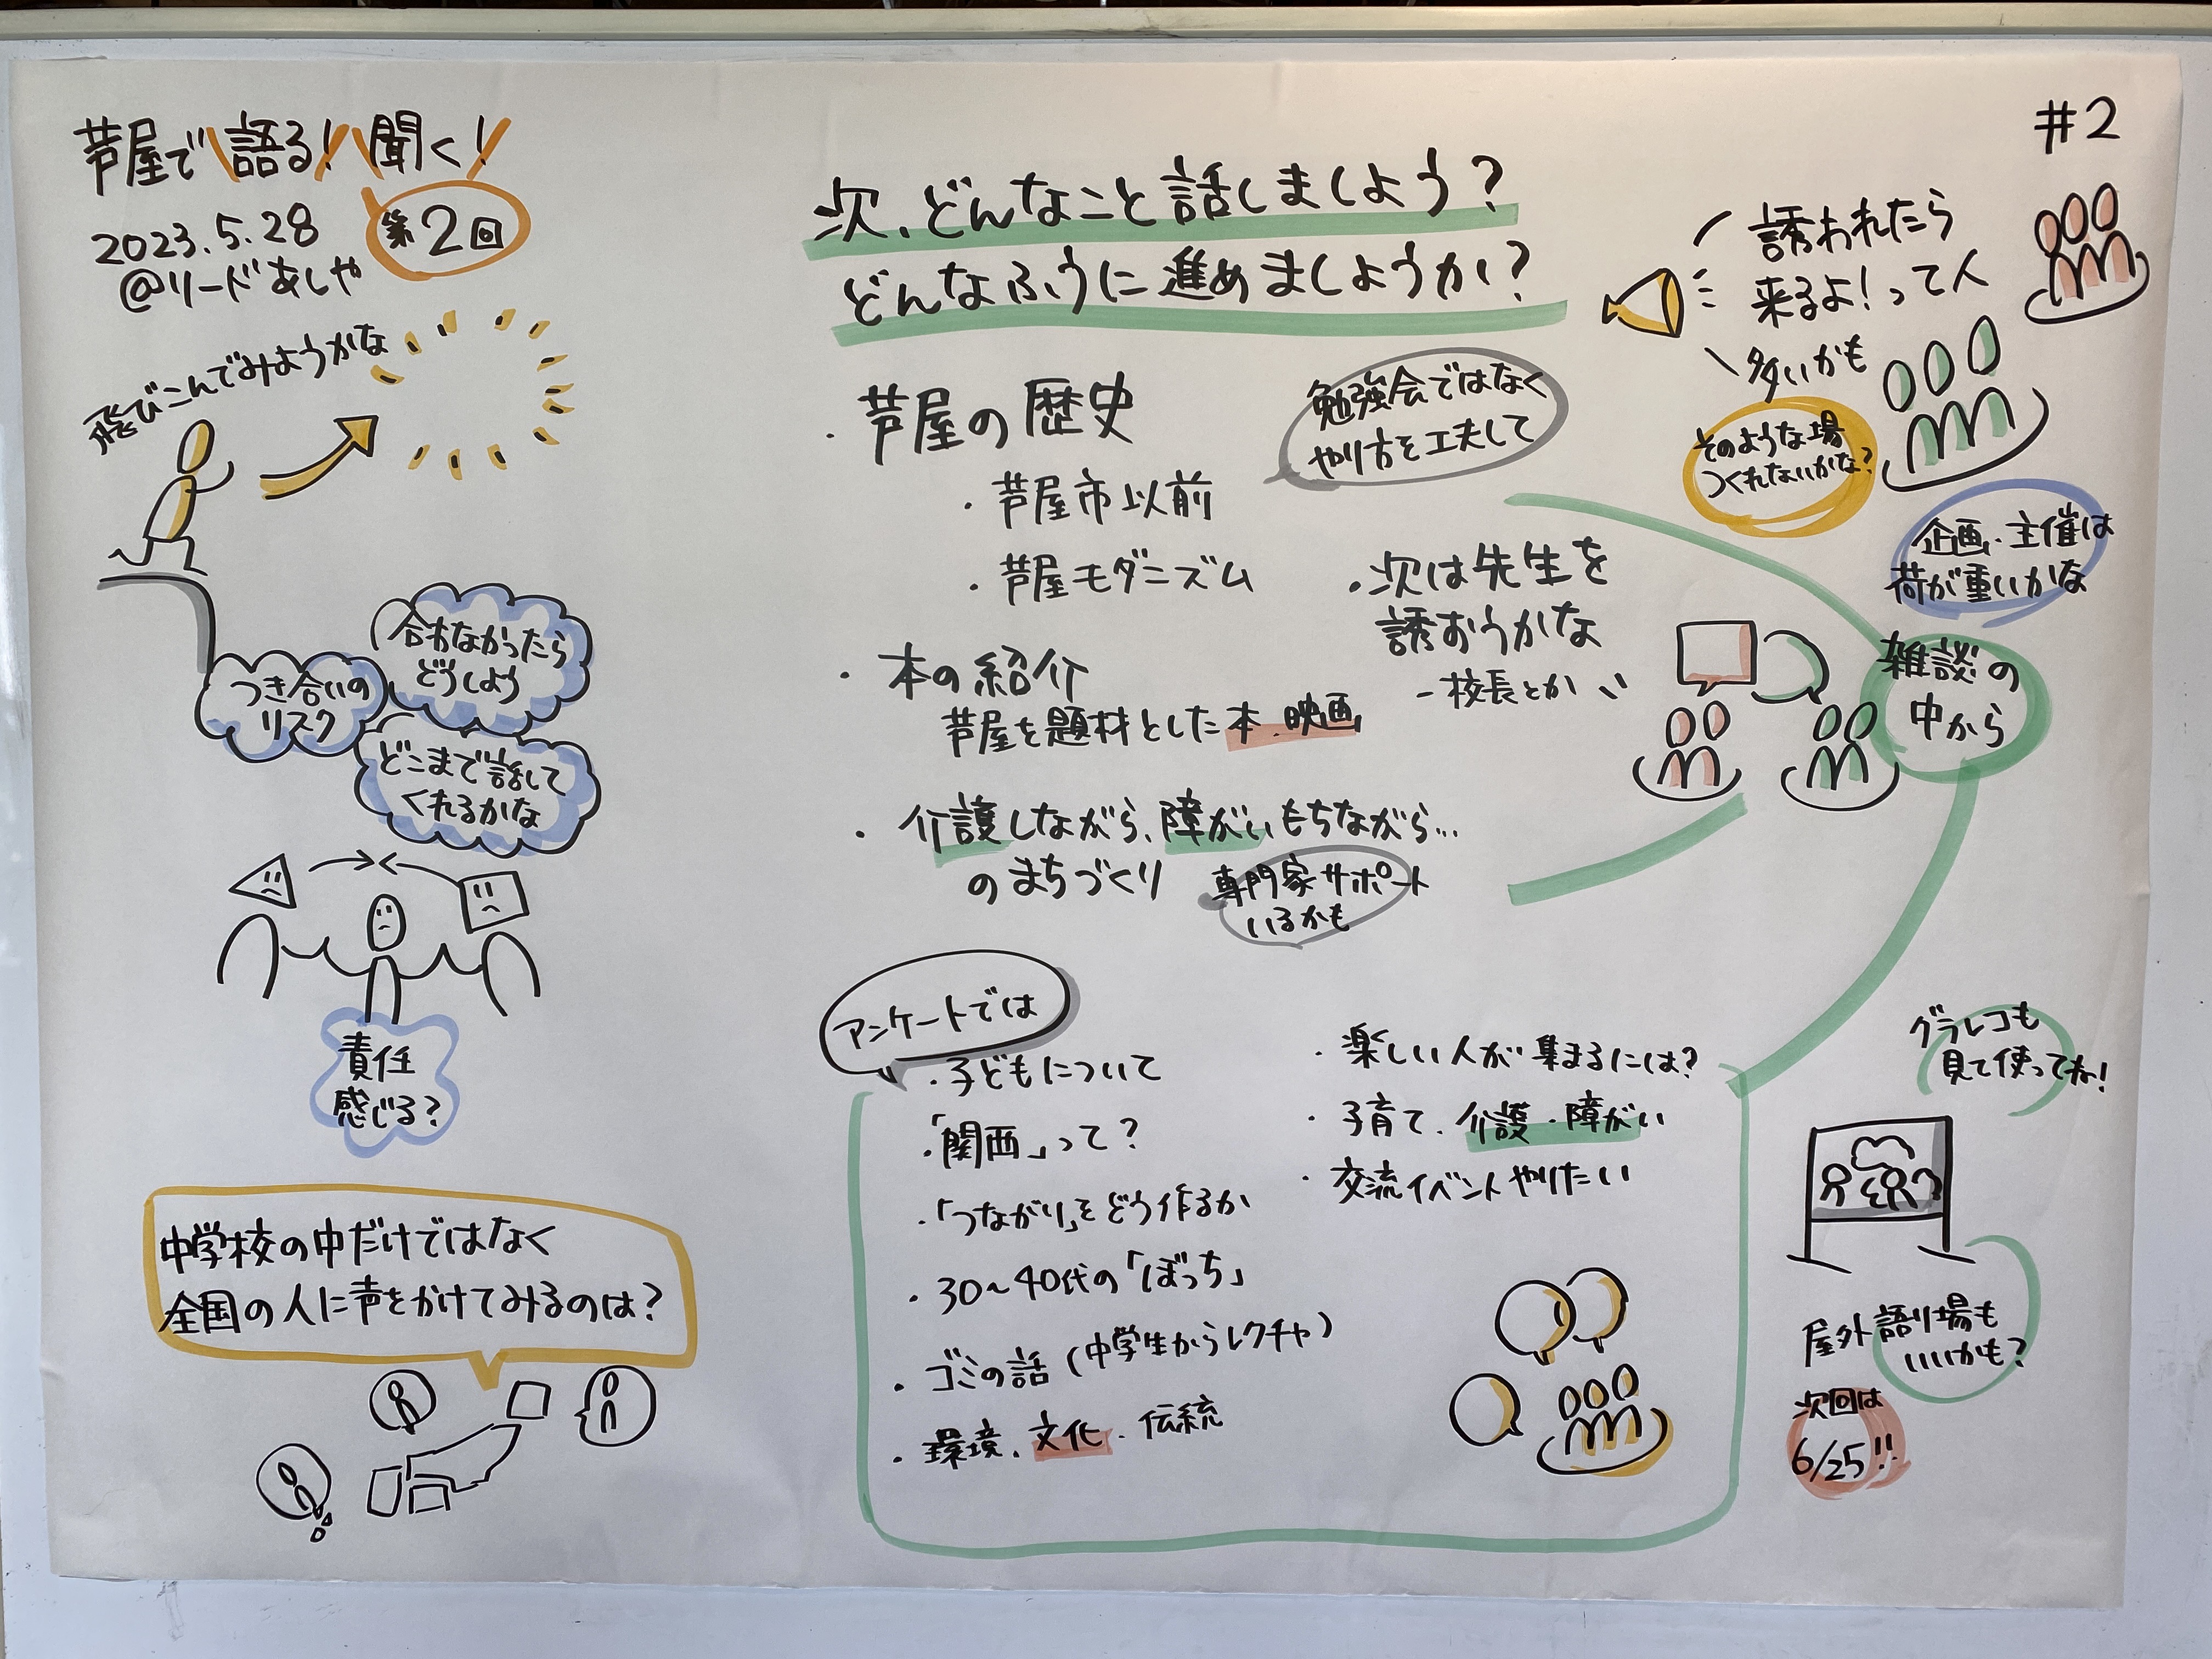 芦屋で語る!聞く!
第2回
2023.5.28
@リードあしや
飛びこんでみようかな
合わなかったら
どうしよう
つき合いの
リスク
どこまで話して
くれるかな
責任
感じる?
中学校の中だけではなく
全国の人に声をかけてみるのは?
#2
次、どんなこと話しましょう?
どんなふうに進めましょうか?
・芦屋の歴史
・芦屋市以前
・芦屋モダニズム
勉強会ではなく
やり方を工夫して
・本の紹介
芦屋を題材とした本、映画
・次は先生を
誘おうかな
-校長とか
・介護しながら、障がいもちながら…
のまちづくり
専門家サポート
いるかも
誘われたら
来るよ!って人
多いかも
そのような場
つくれないかな?
企画・主催は
荷が重いかな
雑談の
中から
アンケートでは
・子どもについて
・「関西」って?
・「つながり」をどう作るか
・30~40代の「ぼっち」
・ゴミの話(中学生からレクチャ)
・環境、文化、伝統
・楽しい人が集まるには?
・子育て、介護・障がい
・交流イベントやりたい
グラレコも
見て使ってね!
屋外語り場も
いいかも?
次回は
6/25!!